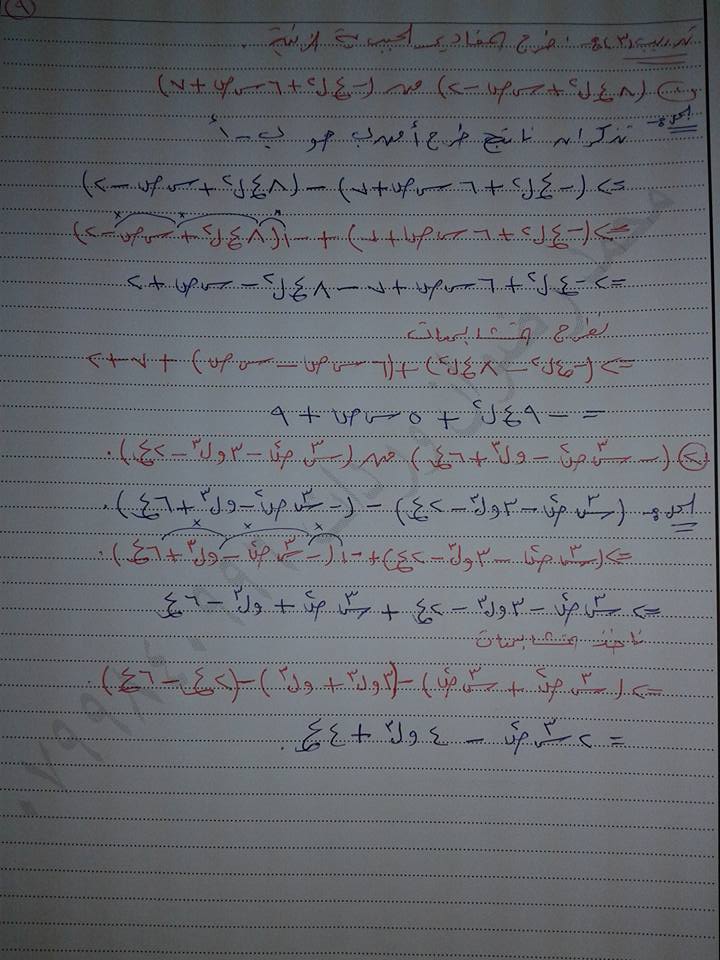 ٩
تدريب (٣) : طرح المقادير الجبرية الآتية.
١) (٨ع ل٢ + س ص - ٢) من (-ع ل٢ + ٦ س ص + ٧)
الحل: تذكر ان ناتج طرح أ من ب هو ب - أ
=> (-ع ل٢ + ٦ س ص + ٧) - (٨ع ل٢ + س ص - ٢)
=> (-ع ل٢ + ٦ س ص + ٧) + -١(٨ع ل٢ + س ص - ٢)
=> -ع ل٢ + ٦ س ص + ٧ - ٨ع ل٢ - س ص + ٢
نطرح المتشابهات
=> (-ع ل٢ - ٨ع ل٢) + (٦ س ص - س ص) + ٧ + ٢
= -٩ع ل٢ + ٥ س ص + ٩
٢) (-س٣ ص٢ - و ل٣ + ٦ع) من (س٣ ص٢ - ٣و ل٣ - ٢ع).
الحل: (س٣ ص٢ - ٣و ل٣ - ٢ع) - (-س٣ ص٢ - و ل٣ + ٦ع).
=> (س٣ ص٢ - ٣و ل٣ - ٢ع) + -١(-س٣ ص٢ - و ل٣ + ٦ع).
=> س٣ ص٢ - ٣و ل٣ - ٢ع + س٣ ص٢ + و ل٣ - ٦ع
نأخذ المتشابهات
=> (س٣ ص٢ + س٣ ص٢) - (٣و ل٣ + و ل٣) - (٢ع - ٦ع).
= ٢ س٣ ص٢ - ٤ و ل٣ + ٤ع.